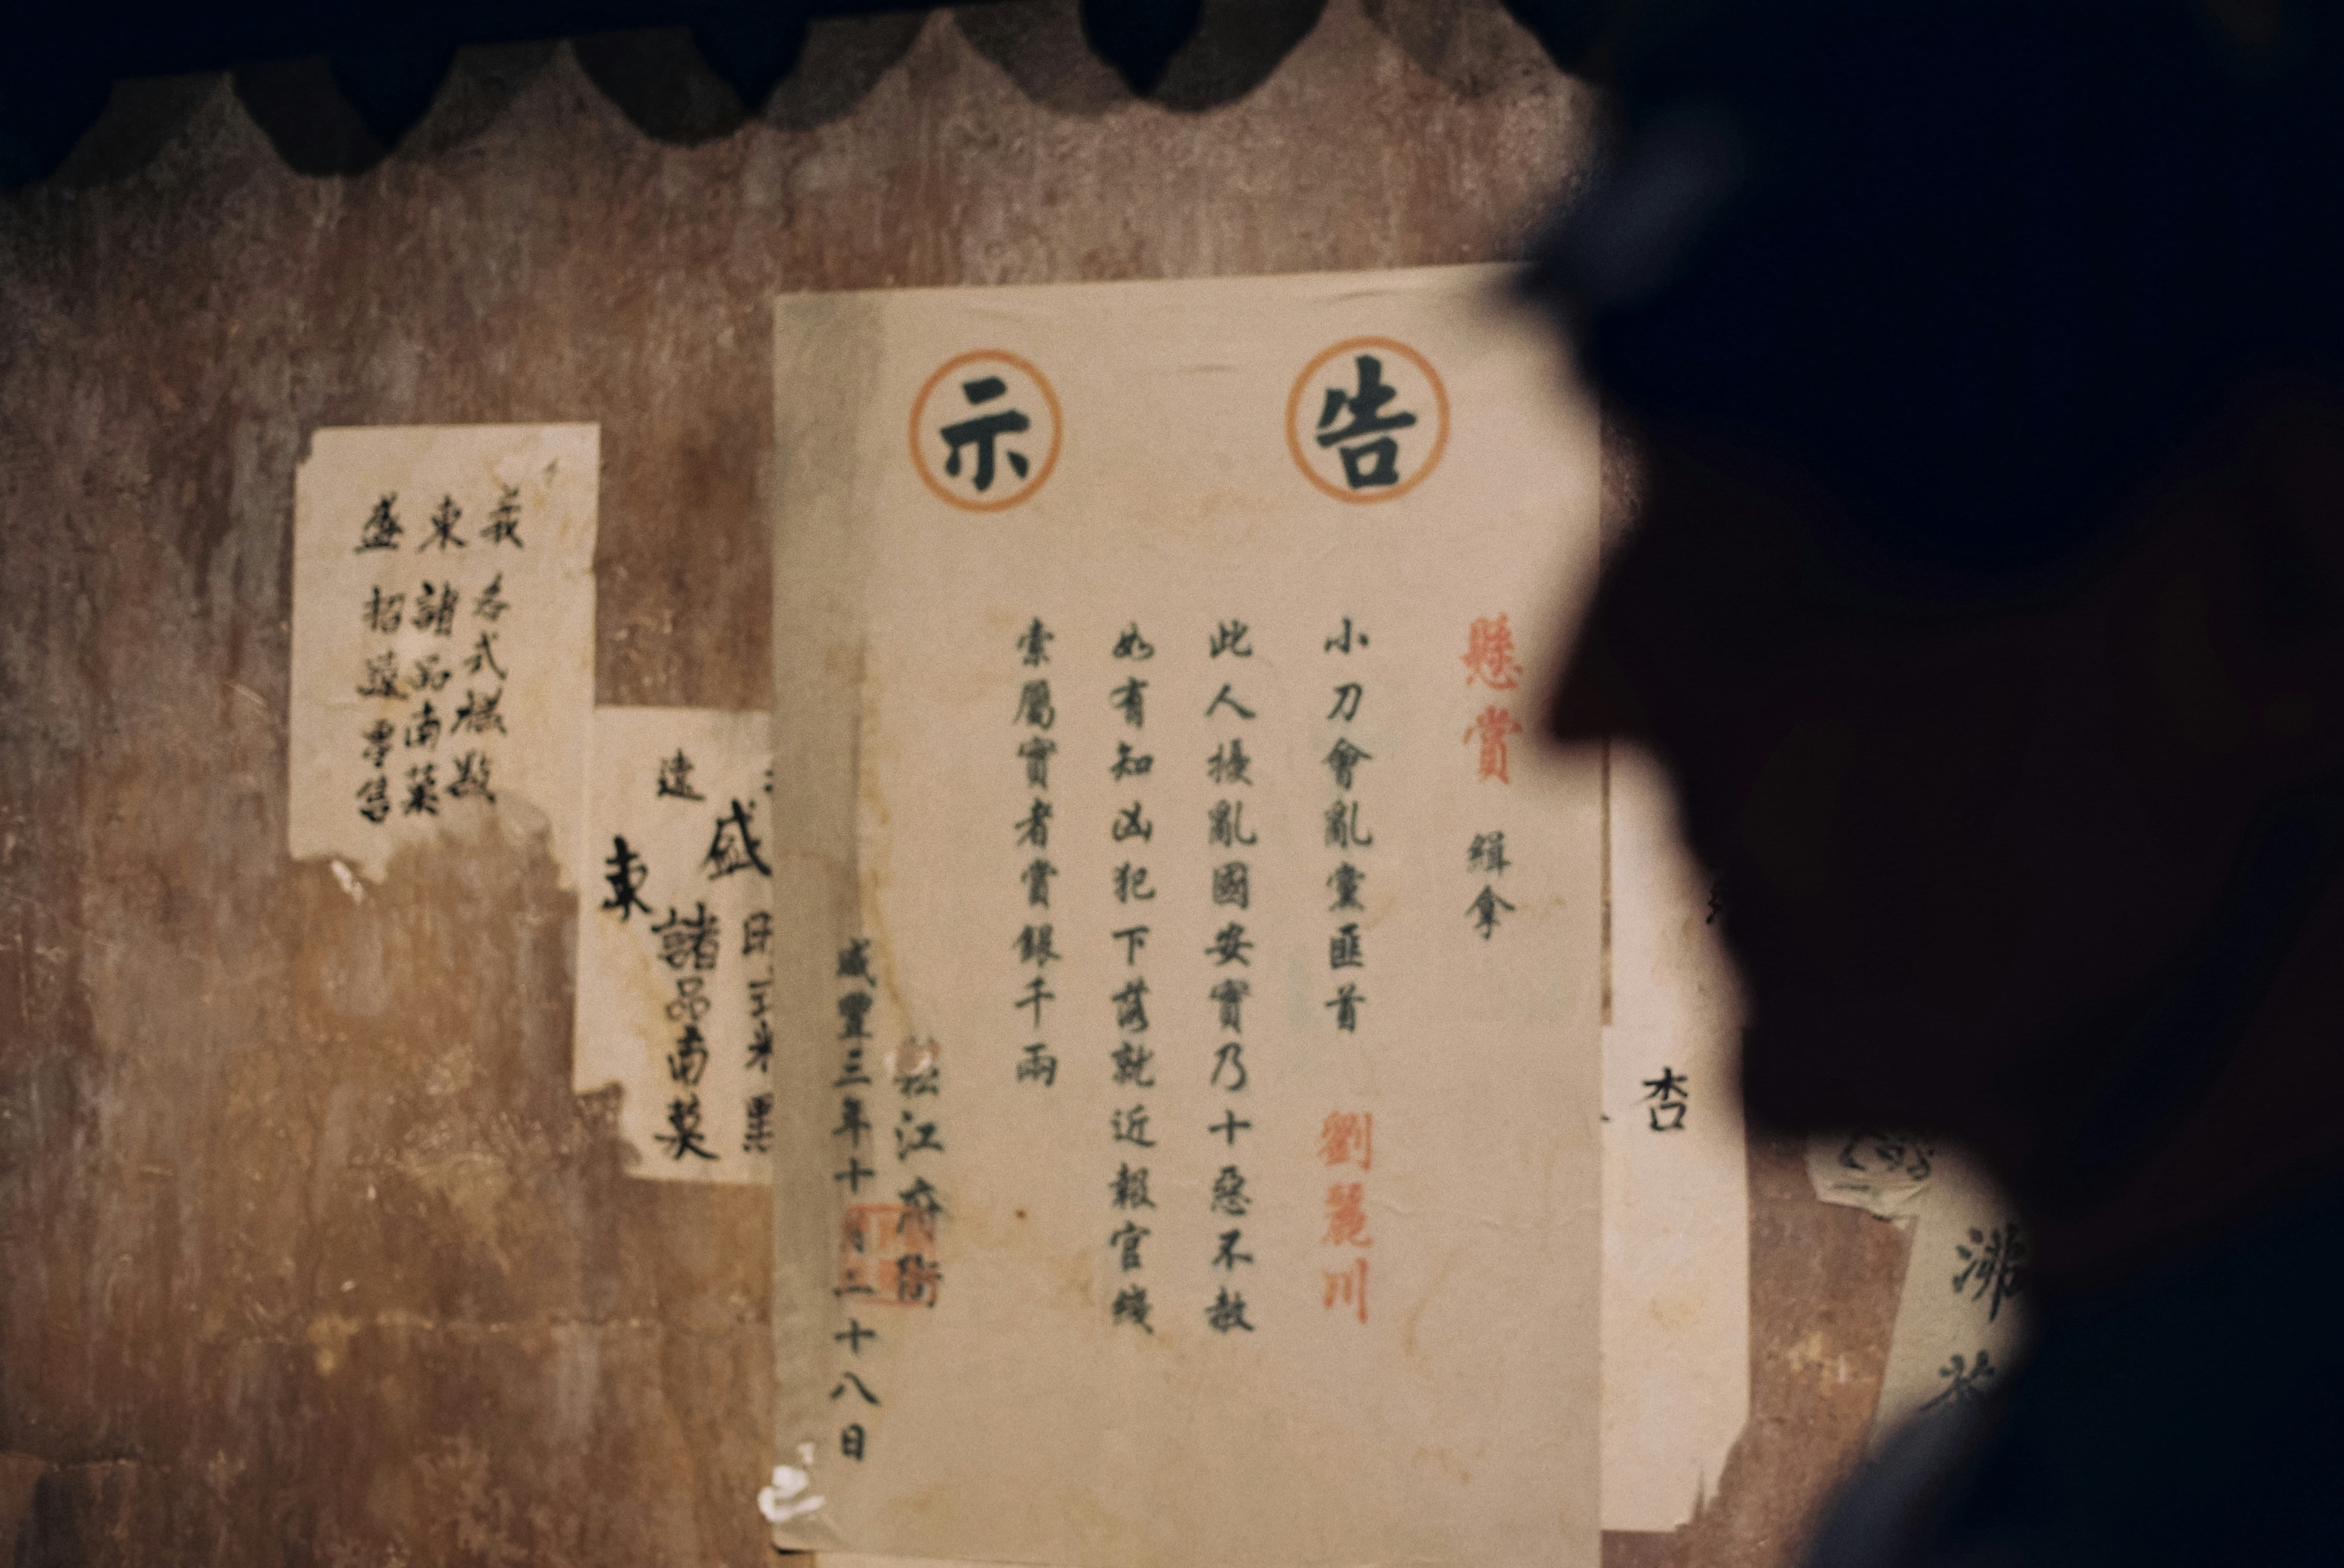 告示
懸賞 緝拿
小刀會亂黨匪首 劉麗川
此人擾亂國安實乃十惡不赦
如有知凶犯下落就近報官綫
索屬實者賞銀千兩
松江府衙
咸豐三年十月二十八日
杏
遠
盛
東
諸品南葉
義 各式樣
東 諸品南葉
盛 招 零售